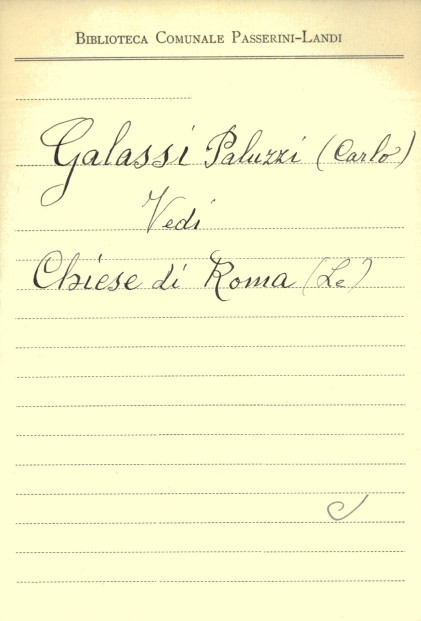 BIBLIOTECA COMUNALE PASSERINI-LANDI
Galassi Paluzzi (Carlo)
Vedi
Chiese di Roma (Le)